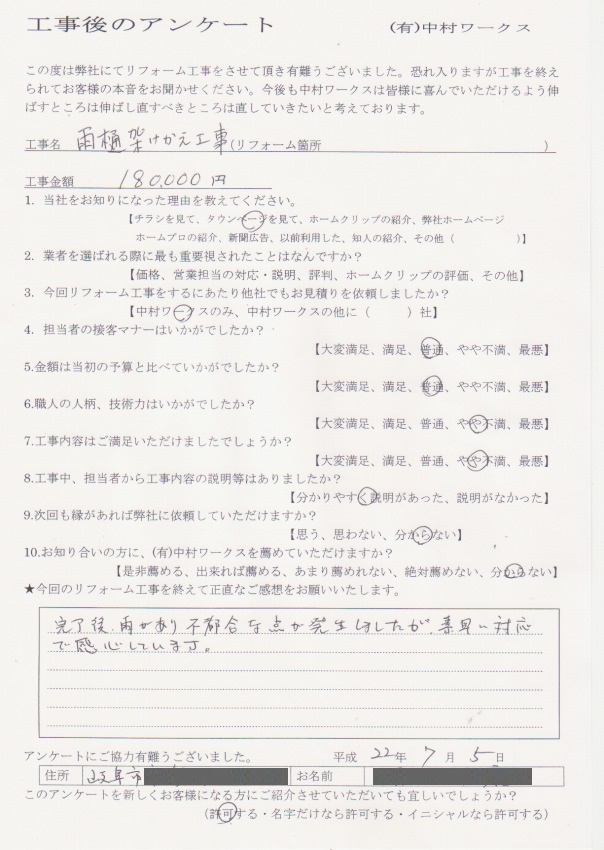 工事後のアンケート (有)中村ワークス
この度は弊社にてリフォーム工事をさせて頂き有難うございました。恐れ入りますが工事を終え
られてお客様の本音をお聞かせください。今後も中村ワークスは皆様に喜んでいただけるよう伸
ばすところは伸ばし直すべきところは直していきたいと考えております。
工事名 雨樋架けかえ工事(リフォーム箇所 )
工事金額 180,000円
1. 当社をお知りになった理由を教えてください。
【チラシを見て、タウンページを見て、ホームクリップの紹介、弊社ホームページ
ホームプロの紹介、新聞広告、以前利用した、知人の紹介、その他( )】
2. 業者を選ばれる際に最も重要視されたことはなんですか?
【価格、営業担当の対応・説明、評判、ホームクリップの評価、その他】
3. 今回リフォーム工事をするにあたり他社でもお見積りを依頼しましたか?
【中村ワークスのみ、中村ワークスの他に( )社】
4. 担当者の接客マナーはいかがでしたか?
【大変満足、満足、普通、やや不満、最悪】
5.金額は当初の予算と比べていかがでしたか?
【大変満足、満足、普通、やや不満、最悪】
6.職人の人柄、技術力はいかがでしたか?
【大変満足、満足、普通、やや不満、最悪】
7.工事内容はご満足いただけましたでしょうか?
【大変満足、満足、普通、やや不満、最悪】
8.工事中、担当者から工事内容の説明等はありましたか?
【分かりやすく説明があった、説明がなかった】
9.次回も縁があれば弊社に依頼していただけますか?
【思う、思わない、分からない】
10.お知り合いの方に、(有)中村ワークスを薦めていただけますか?
【是非薦める、出来れば薦める、あまり薦めれない、絶対薦めない、分からない】
★今回のリフォーム工事を終えて正直なご感想をお願いいたします。
完了後、雨があり不都合な点が発生しましたが、素早い対応
で感心しています。
アンケートにご協力有難うございました。 平成 22年 7月 5日
住所 岐阜市 お名前
このアンケートを新しくお客様になる方にご紹介させていただいても宜しいでしょうか?
(許可する・名字だけなら許可する・イニシャルなら許可する)